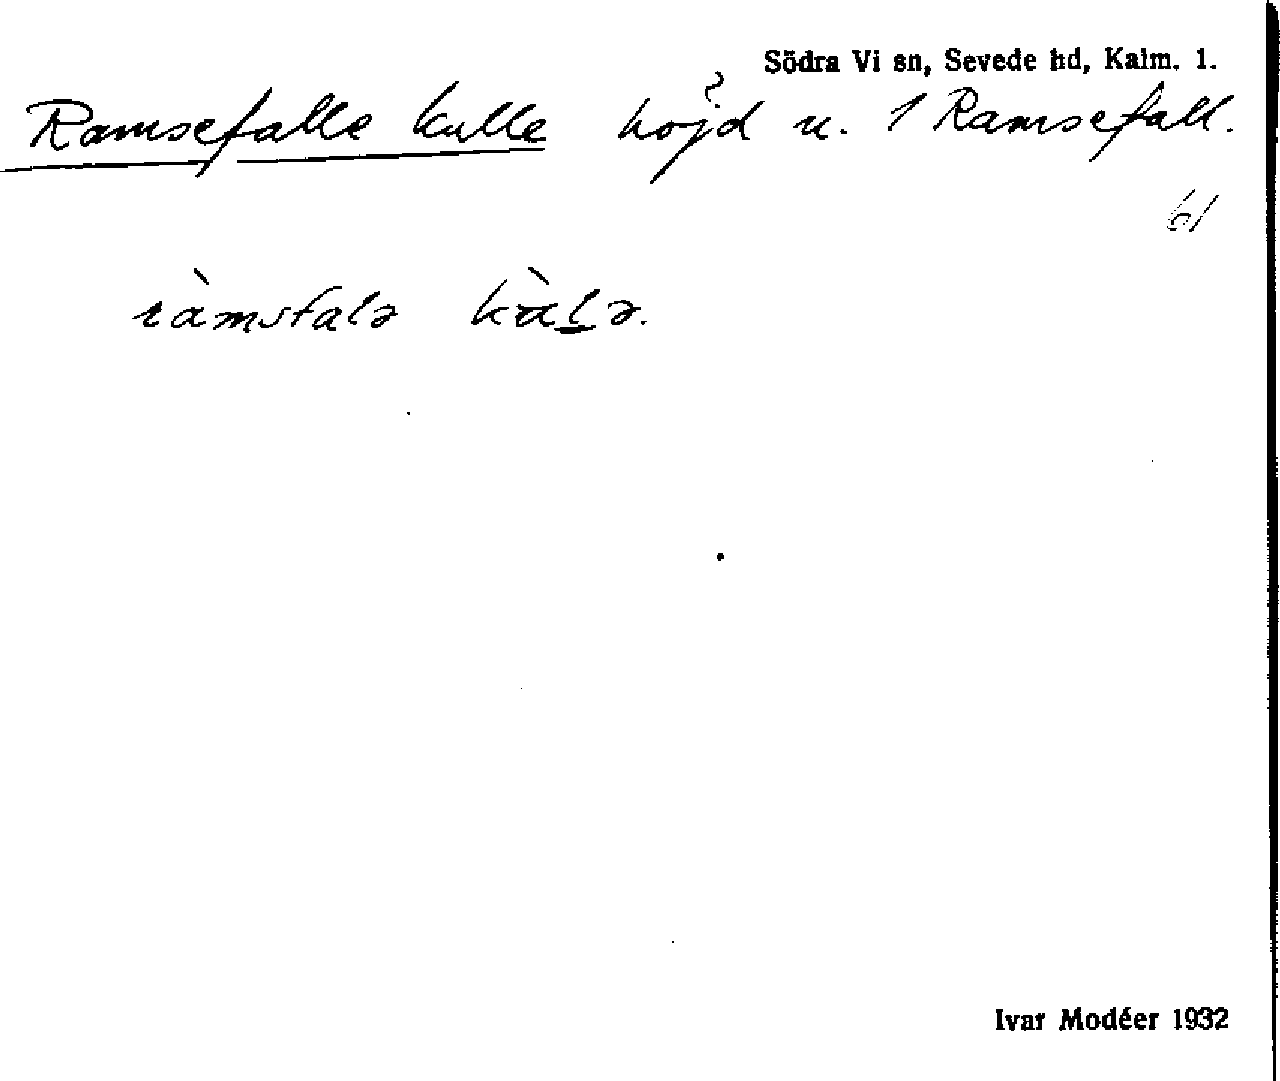 Södra Vi sn, Sevede hd, Kalm. l.
Ramsefalle kulle höjd u. 1 Ramsefall.
61
ràmsfalə kàlə.
Ivar Modéer 1932